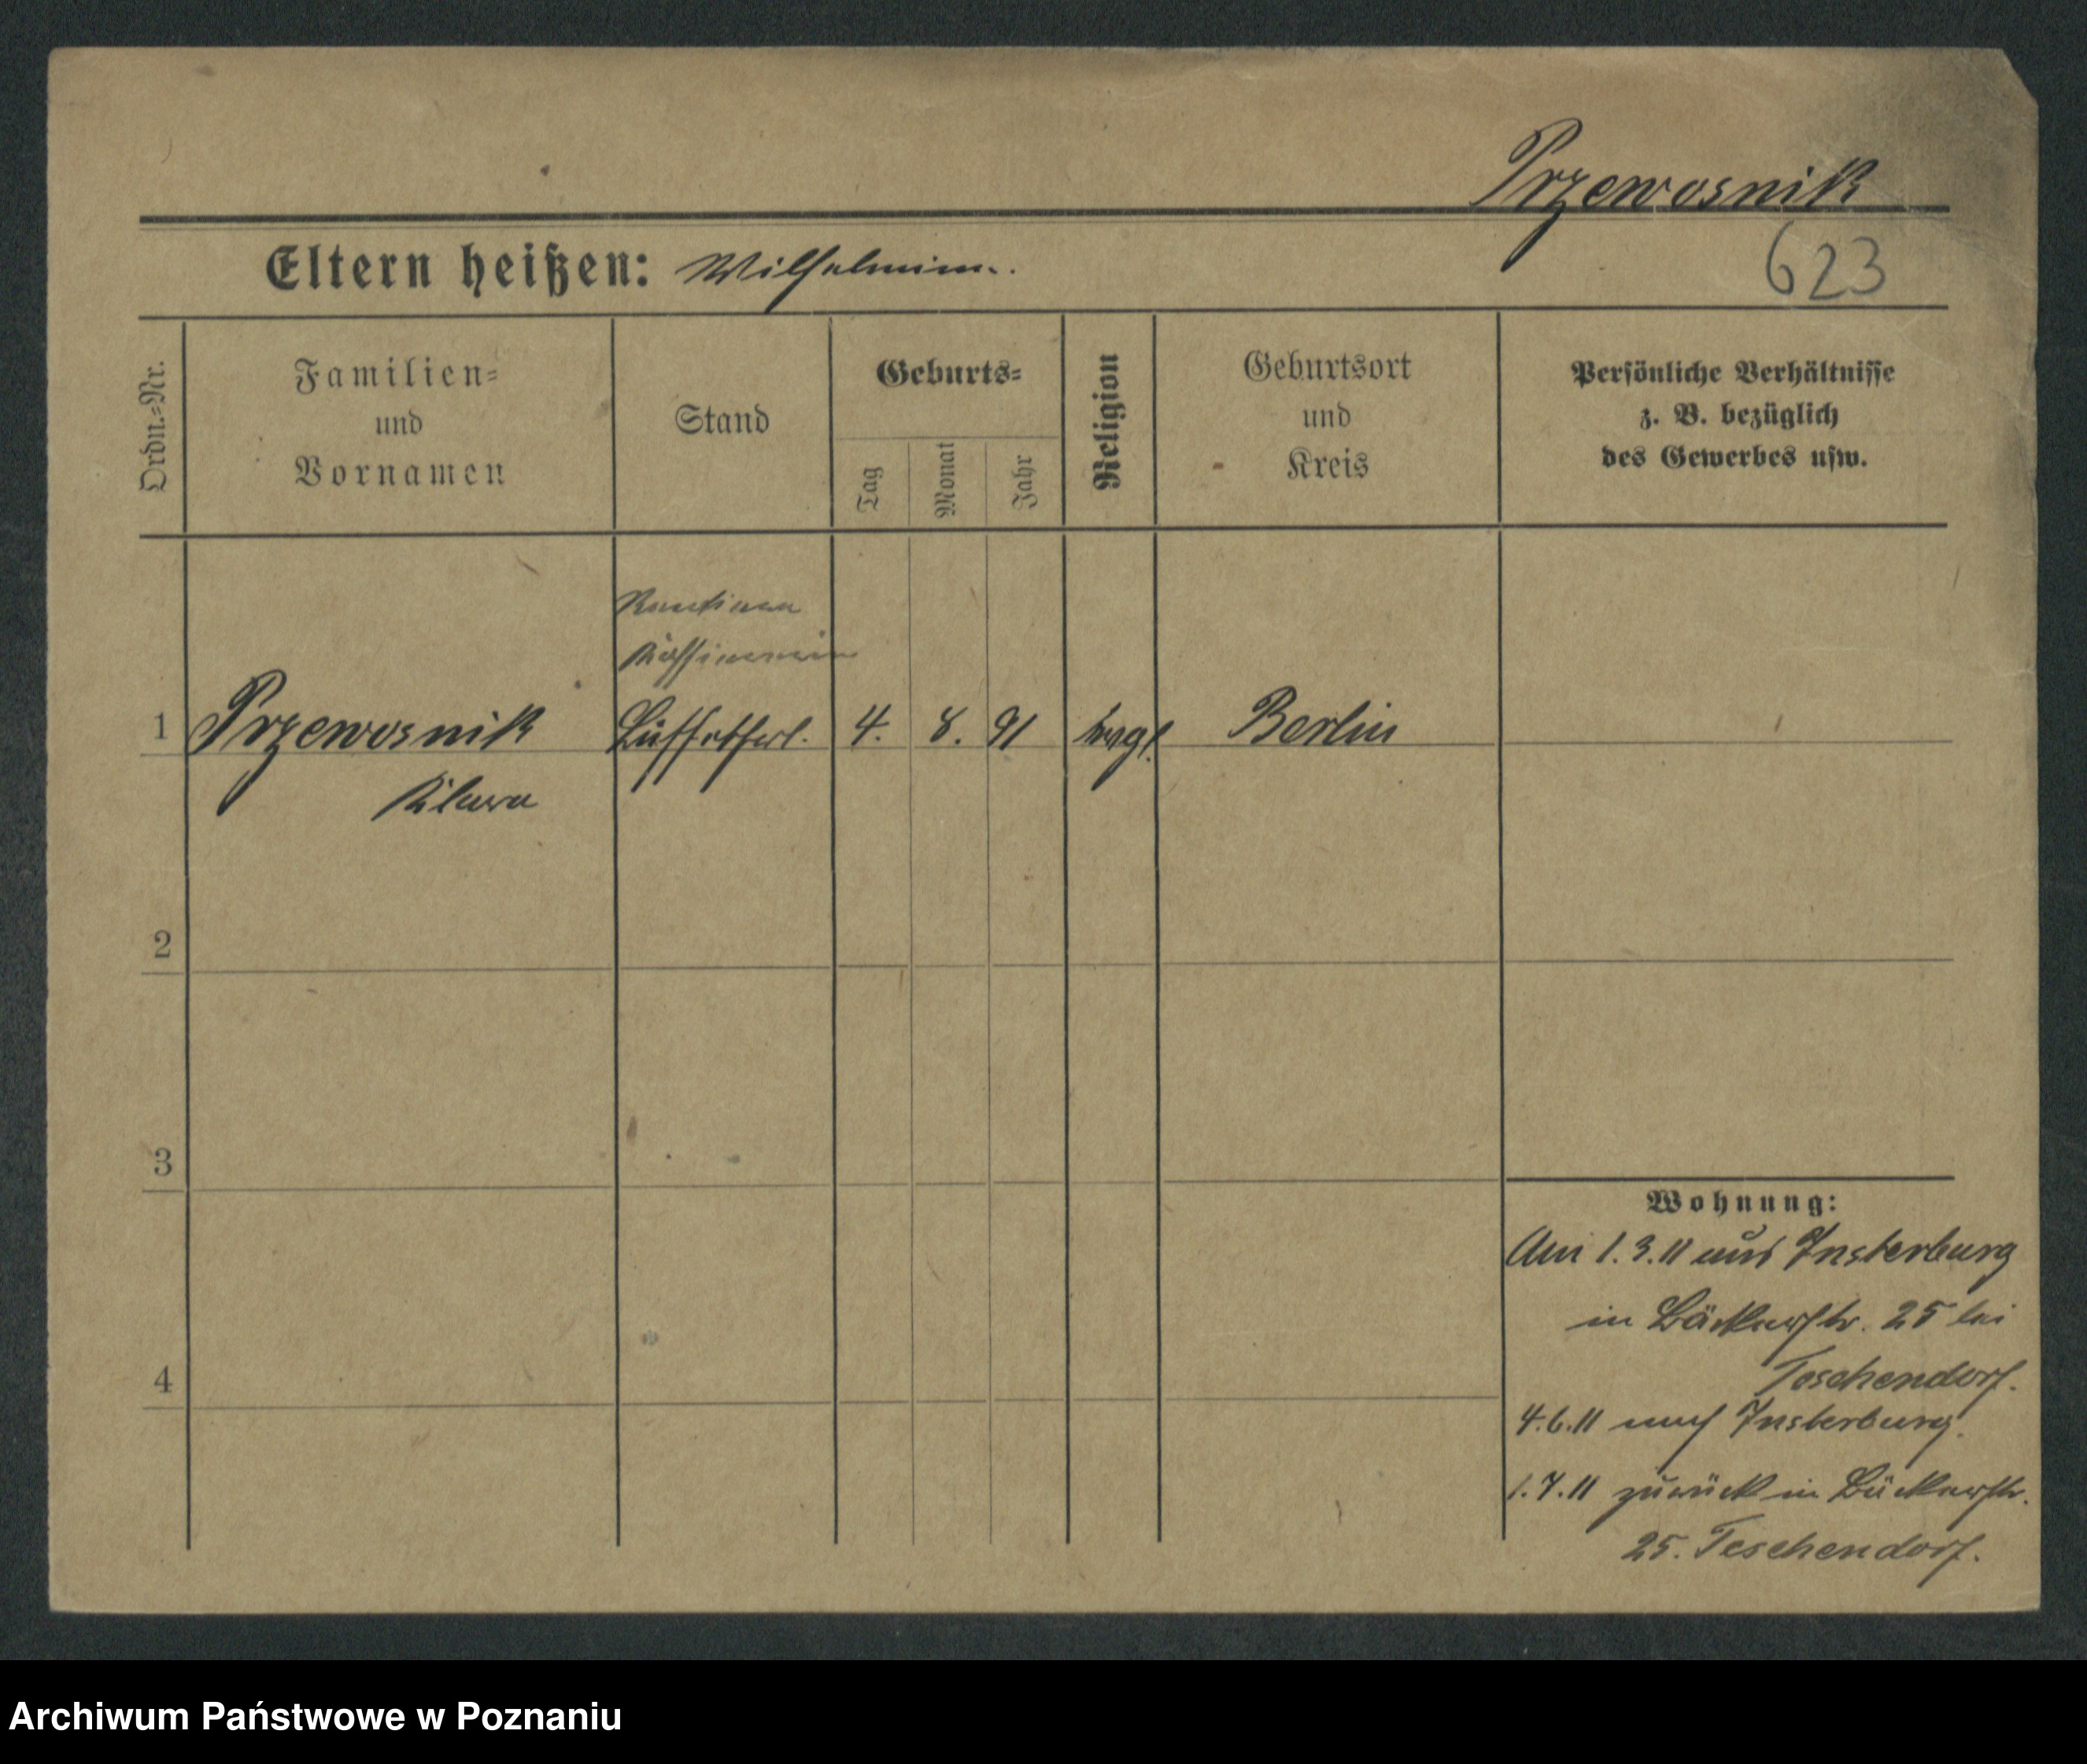 Przewosnik
Eltern heißen: Wilhelmine.
623
Ordn.=Nr.
Familien=
und
Vornamen
Stand
Geburts=
Tag
Monat
Jahr
Religion
Geburtsort
und
Kreis
Persönliche Verhältnisse
z. B. bezüglich
des Gewerbes usw.
1 Przewosnik Büffetfrl. 4. 8. 91 evgl. Berlin
Klara
2
3
4
Wohnung:
Am 1.3.11 aus Insterburg
in Bäckerstr. 25 bei
Teschendorf.
4.6.11 nach Insterburg.
1.7.11 zurück in Bäckerstr.
25. Teschendorf.
Archiwum Państwowe w Poznaniu